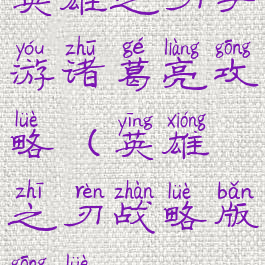 英雄之刃手
yóu zhū gé liàng gōng
游诸葛亮攻
lüè yīng xióng
略（英雄
zhī rèn zhàn lüè bǎn
之刃战略版
gōng lüè